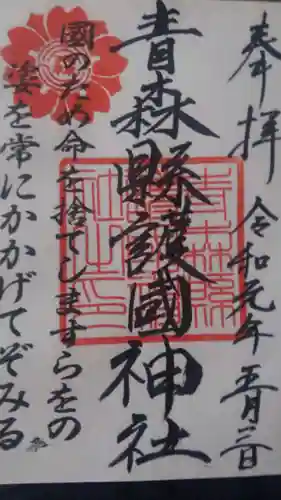 奉拝 令和元年五月三日
青森縣護國神社
國のため命を捨てしますらをの
姿を常にかかげてぞみる